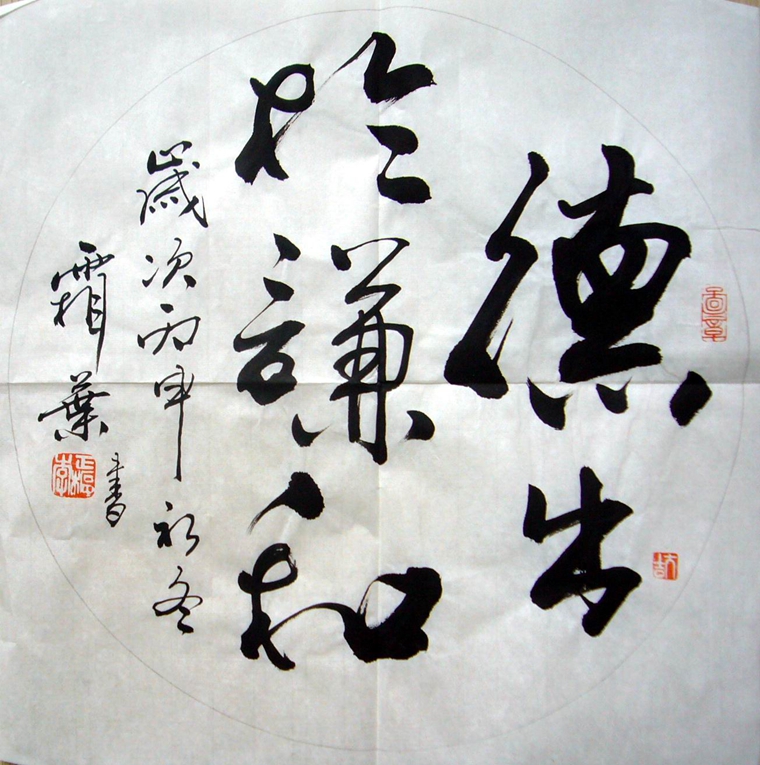 德出
於謙和
歲次丙申初冬
霜葉書